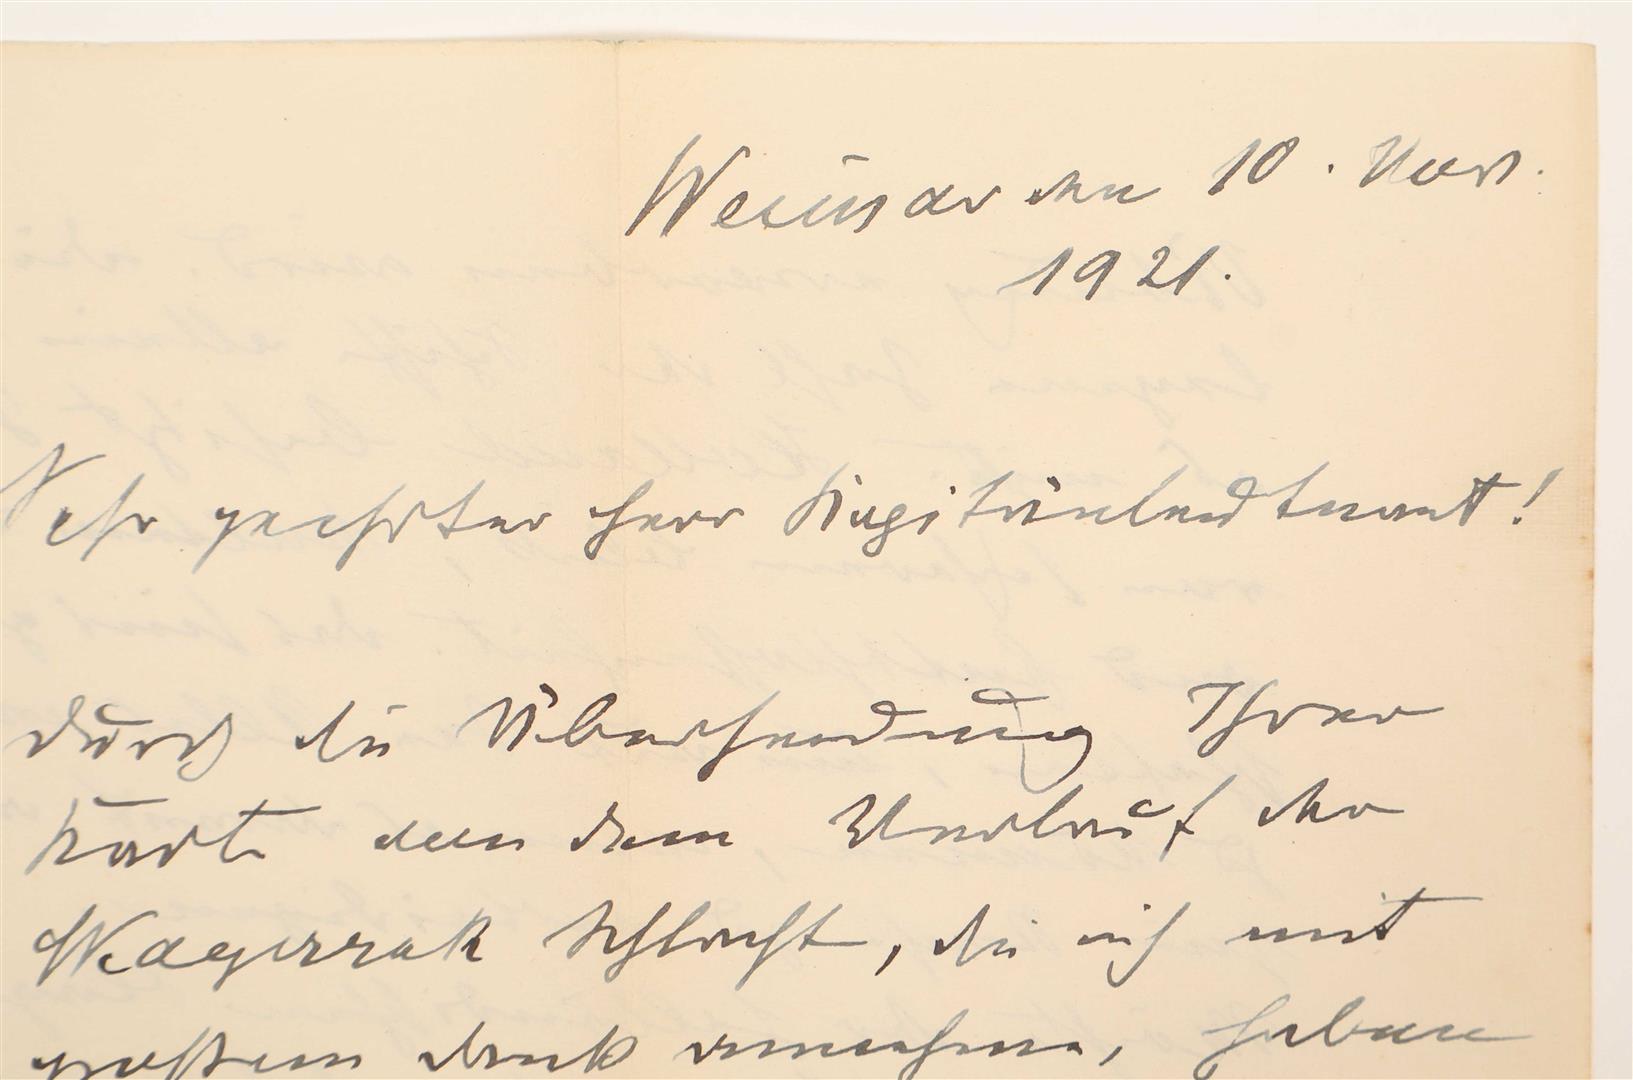 Weimar den 10. Nov.
1921.
Sehr geehrter Herr Kapitänleutnant!
durch die Übersendung Ihrer
Karte von dem Verlauf der
Skagerrak Schlacht, die ich mit
großem Dank annehme, haben